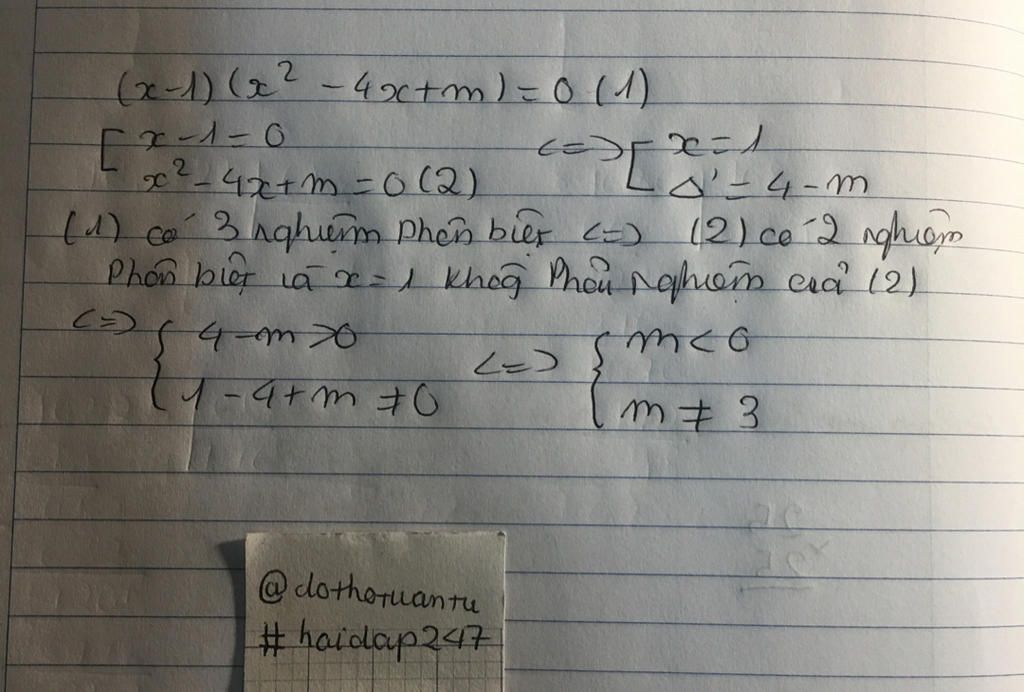 (x-1)(x² - 4x+m)=0 (1)
[ x-1=0 <=> [ x=1
x²-4x+m=0(2) Δ'=4-m
(1) có 3 nghiệm phân biệt <=> (2) có 2 nghiệm
phân biệt và x=1 không phải nghiệm của (2)
<=> { 4-m>0 <=> { m<0
1-4+m≠0 m≠3
@dothotuantu
# haidap247